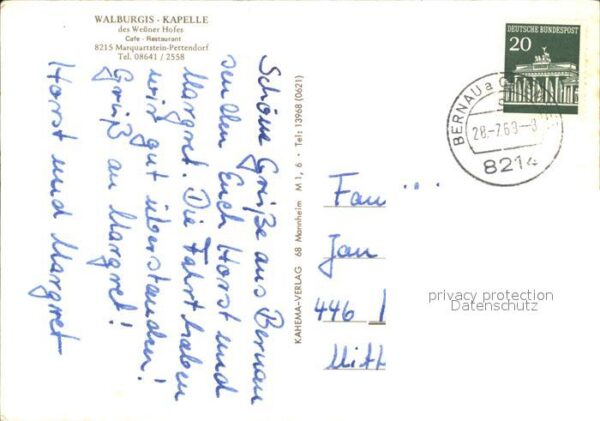 WALBURGIS - KAPELLE
des Weßner Hofes
Cafe - Restaurant
8215 Marquartstein-Pettendorf
Tel. 08641 / 2558
Schöne Grüße aus Bernau
senden Euch Horst und
Margret. Die Fahrt haben
wir gut überstanden!
Gruß an Margret!
Horst und Margret
KAHEMA-VERLAG 68 Mannheim M 1, 6 · Tel: 13968 (0621)
DEUTSCHE BUNDESPOST
20
BERNAU a
28.-7.69-
8214
Fam ...
Jan
446
Mitt
privacy protection
Datenschutz